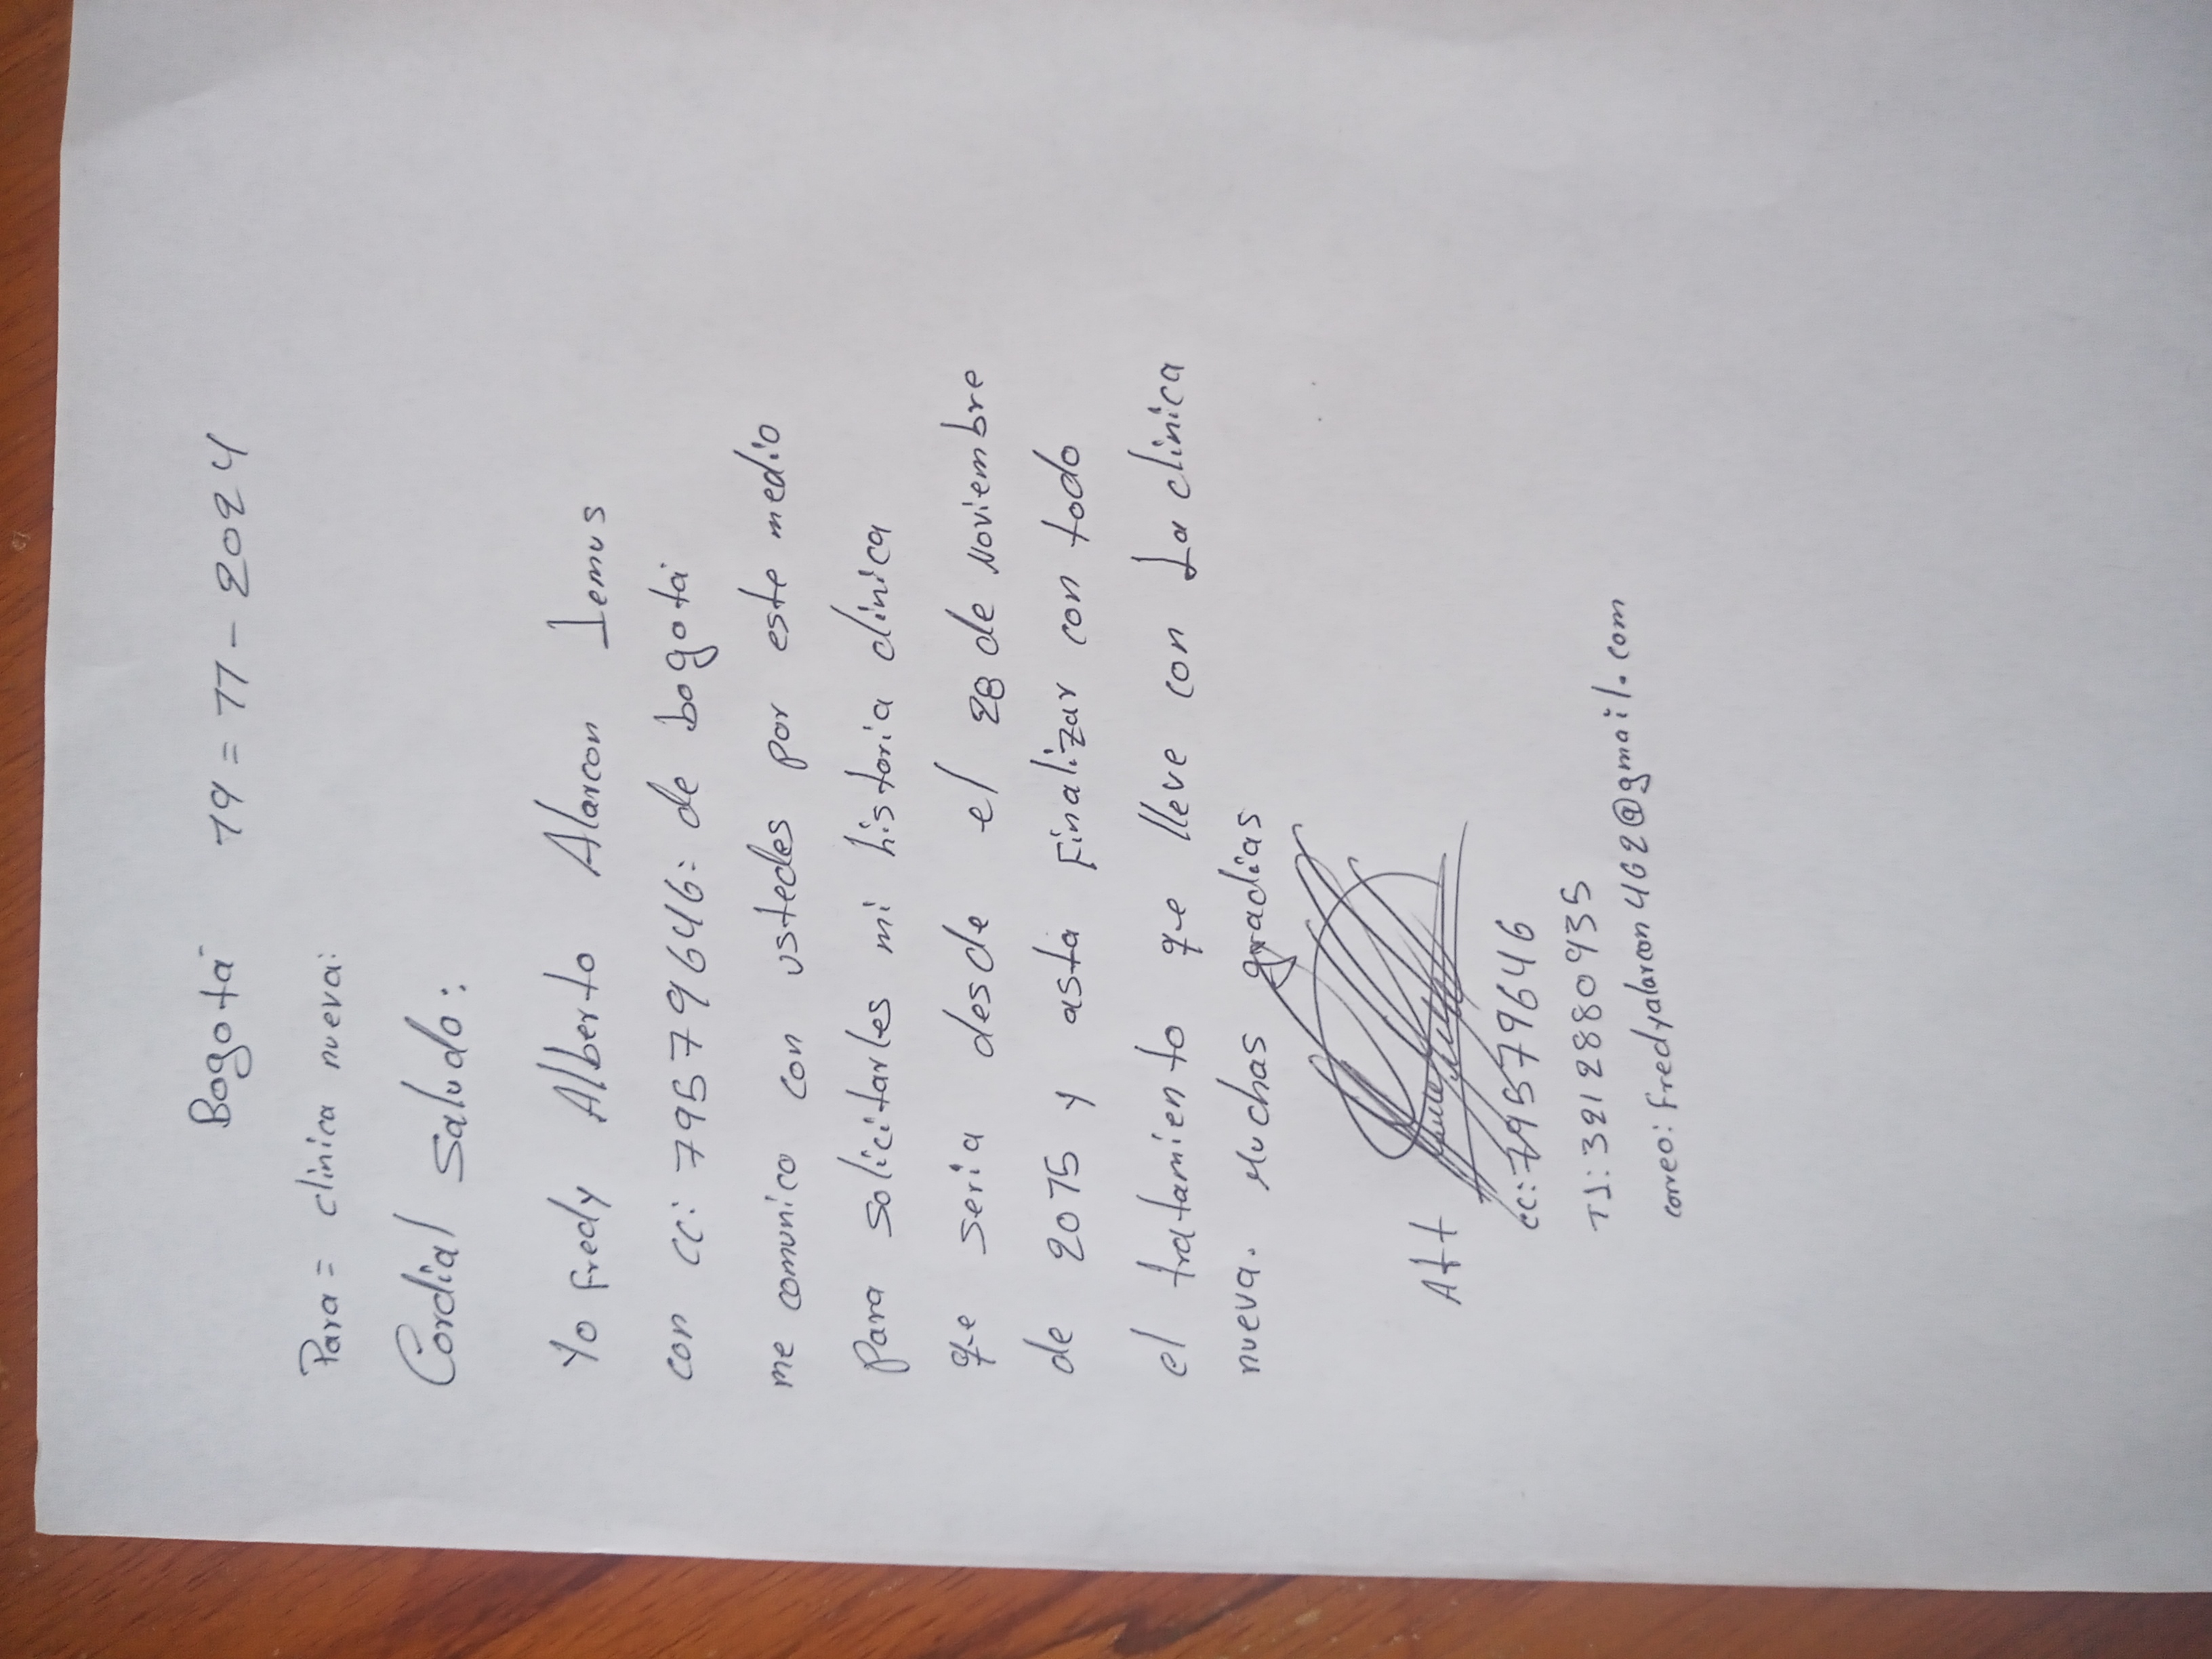 Bogotá 19 = 11 - 2024
Para = clinica nueva:
Cordial saludo:
Yo fredy Alberto Alarcon Lemus
con cc: 79579646: de bogotá
me comunico con ustedes por este medio
para solicitarles mi historia clinica
que seria desde el 28 de Noviembre
de 2015 y asta Finalizar con todo
el tratamiento que lleve con La clinica
nueva. Muchas gracias
Att
cc: 79579646
TL: 3212880935
correo: fredyalarcon462@gmail.com